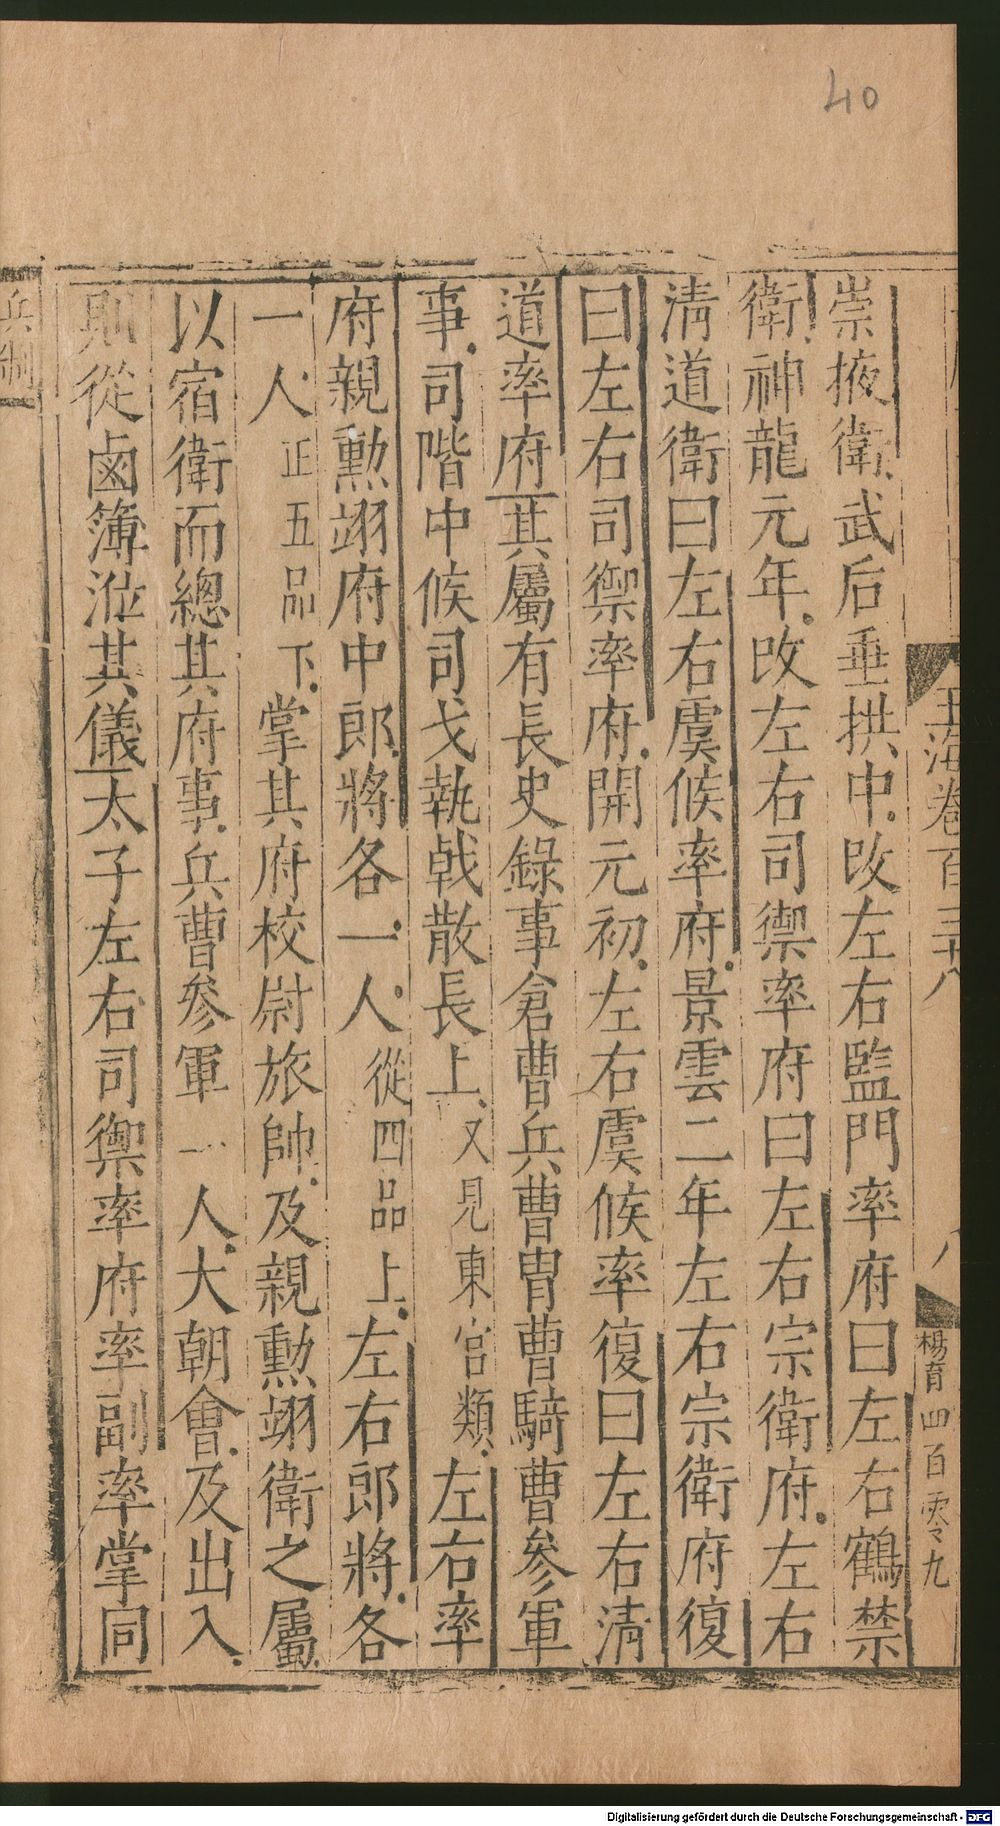 40
玉海卷百三十八
八
楊育四百零九
崇掖衛武后垂拱中改左右監門率府曰左右鶴禁
衛神龍元年改左右司禦率府曰左右宗衛府左右
清道衛曰左右虞候率府景雲二年左右宗衛府復
曰左右司禦率府開元初左右虞候率復曰左右清
道率府其屬有長史錄事倉曹兵曹冑曹騎曹參軍
事司階中候司戈執戟散長上又見東宮類左右率
府親勳翊府中郎將各一人從四品上左右郎將各
一人正五品下掌其府校尉旅帥及親勳翊衛之屬
以宿衛而總其府事兵曹參軍一人大朝會及出入
則從鹵簿涖其儀太子左右司禦率府率副率掌同
兵制
Digitalisierung gefördert durch die Deutsche Forschungsgemeinschaft - DFG